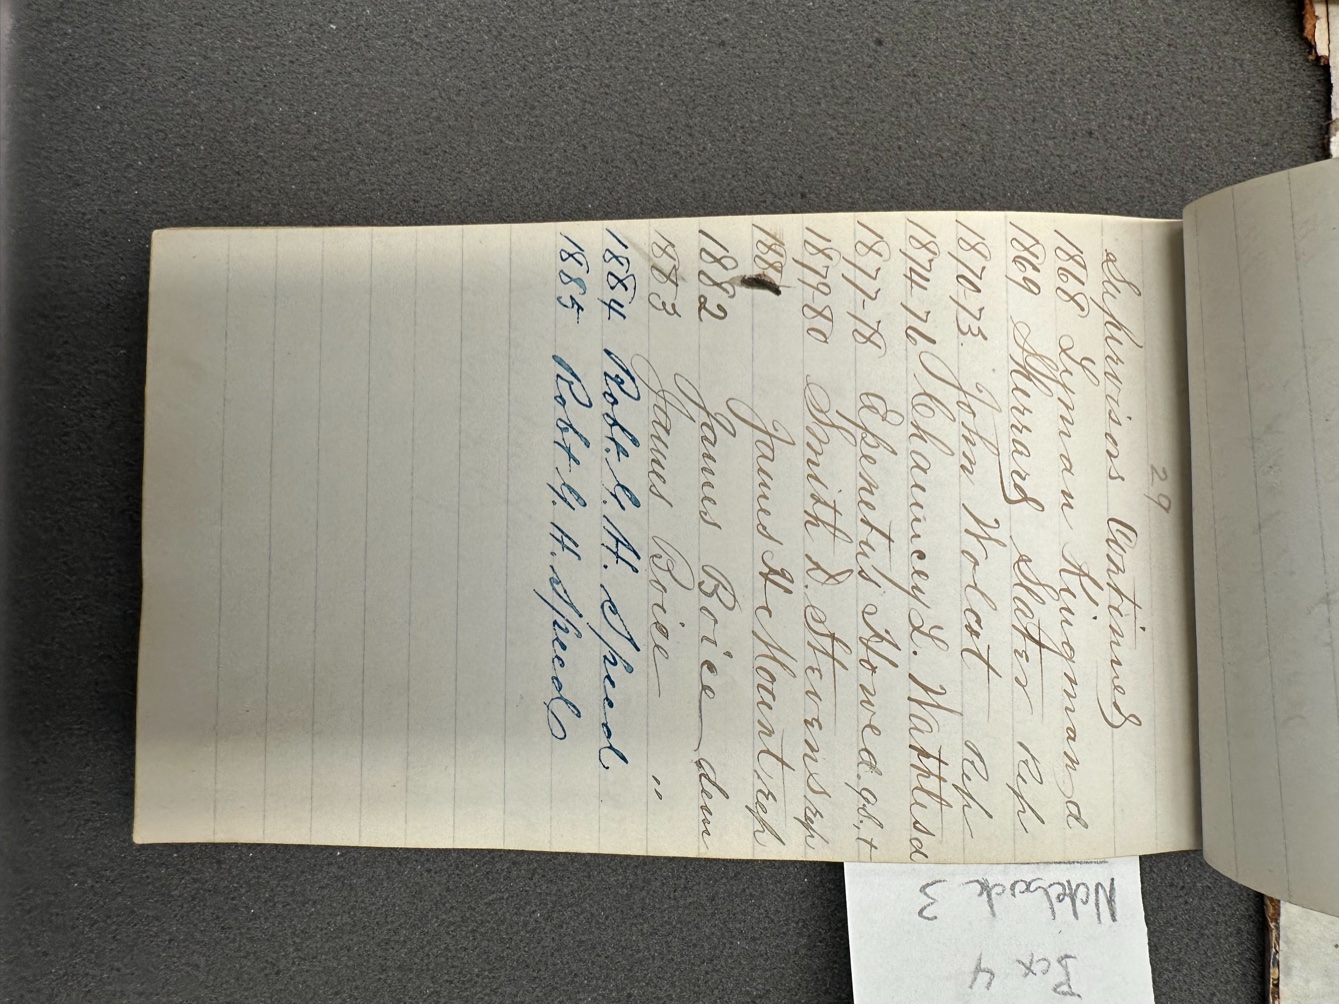 29
Supervisors Continued
1868 Lyman Kingman d
1869 Sherrard Slater Rep
1870-73. John Wolcot Rep
1874-76 Chauncey L. Wattles d
1877-78 Epenetus Howe d. g.b.,t
1879-80 Smith D. Stevens rep
188 James H Mount rep
1882 James Boice dem
1883 James Boice "
1884 Robt. G. H. Speed
1885 Robt G. H. Speed
Box 4
Notebook 3